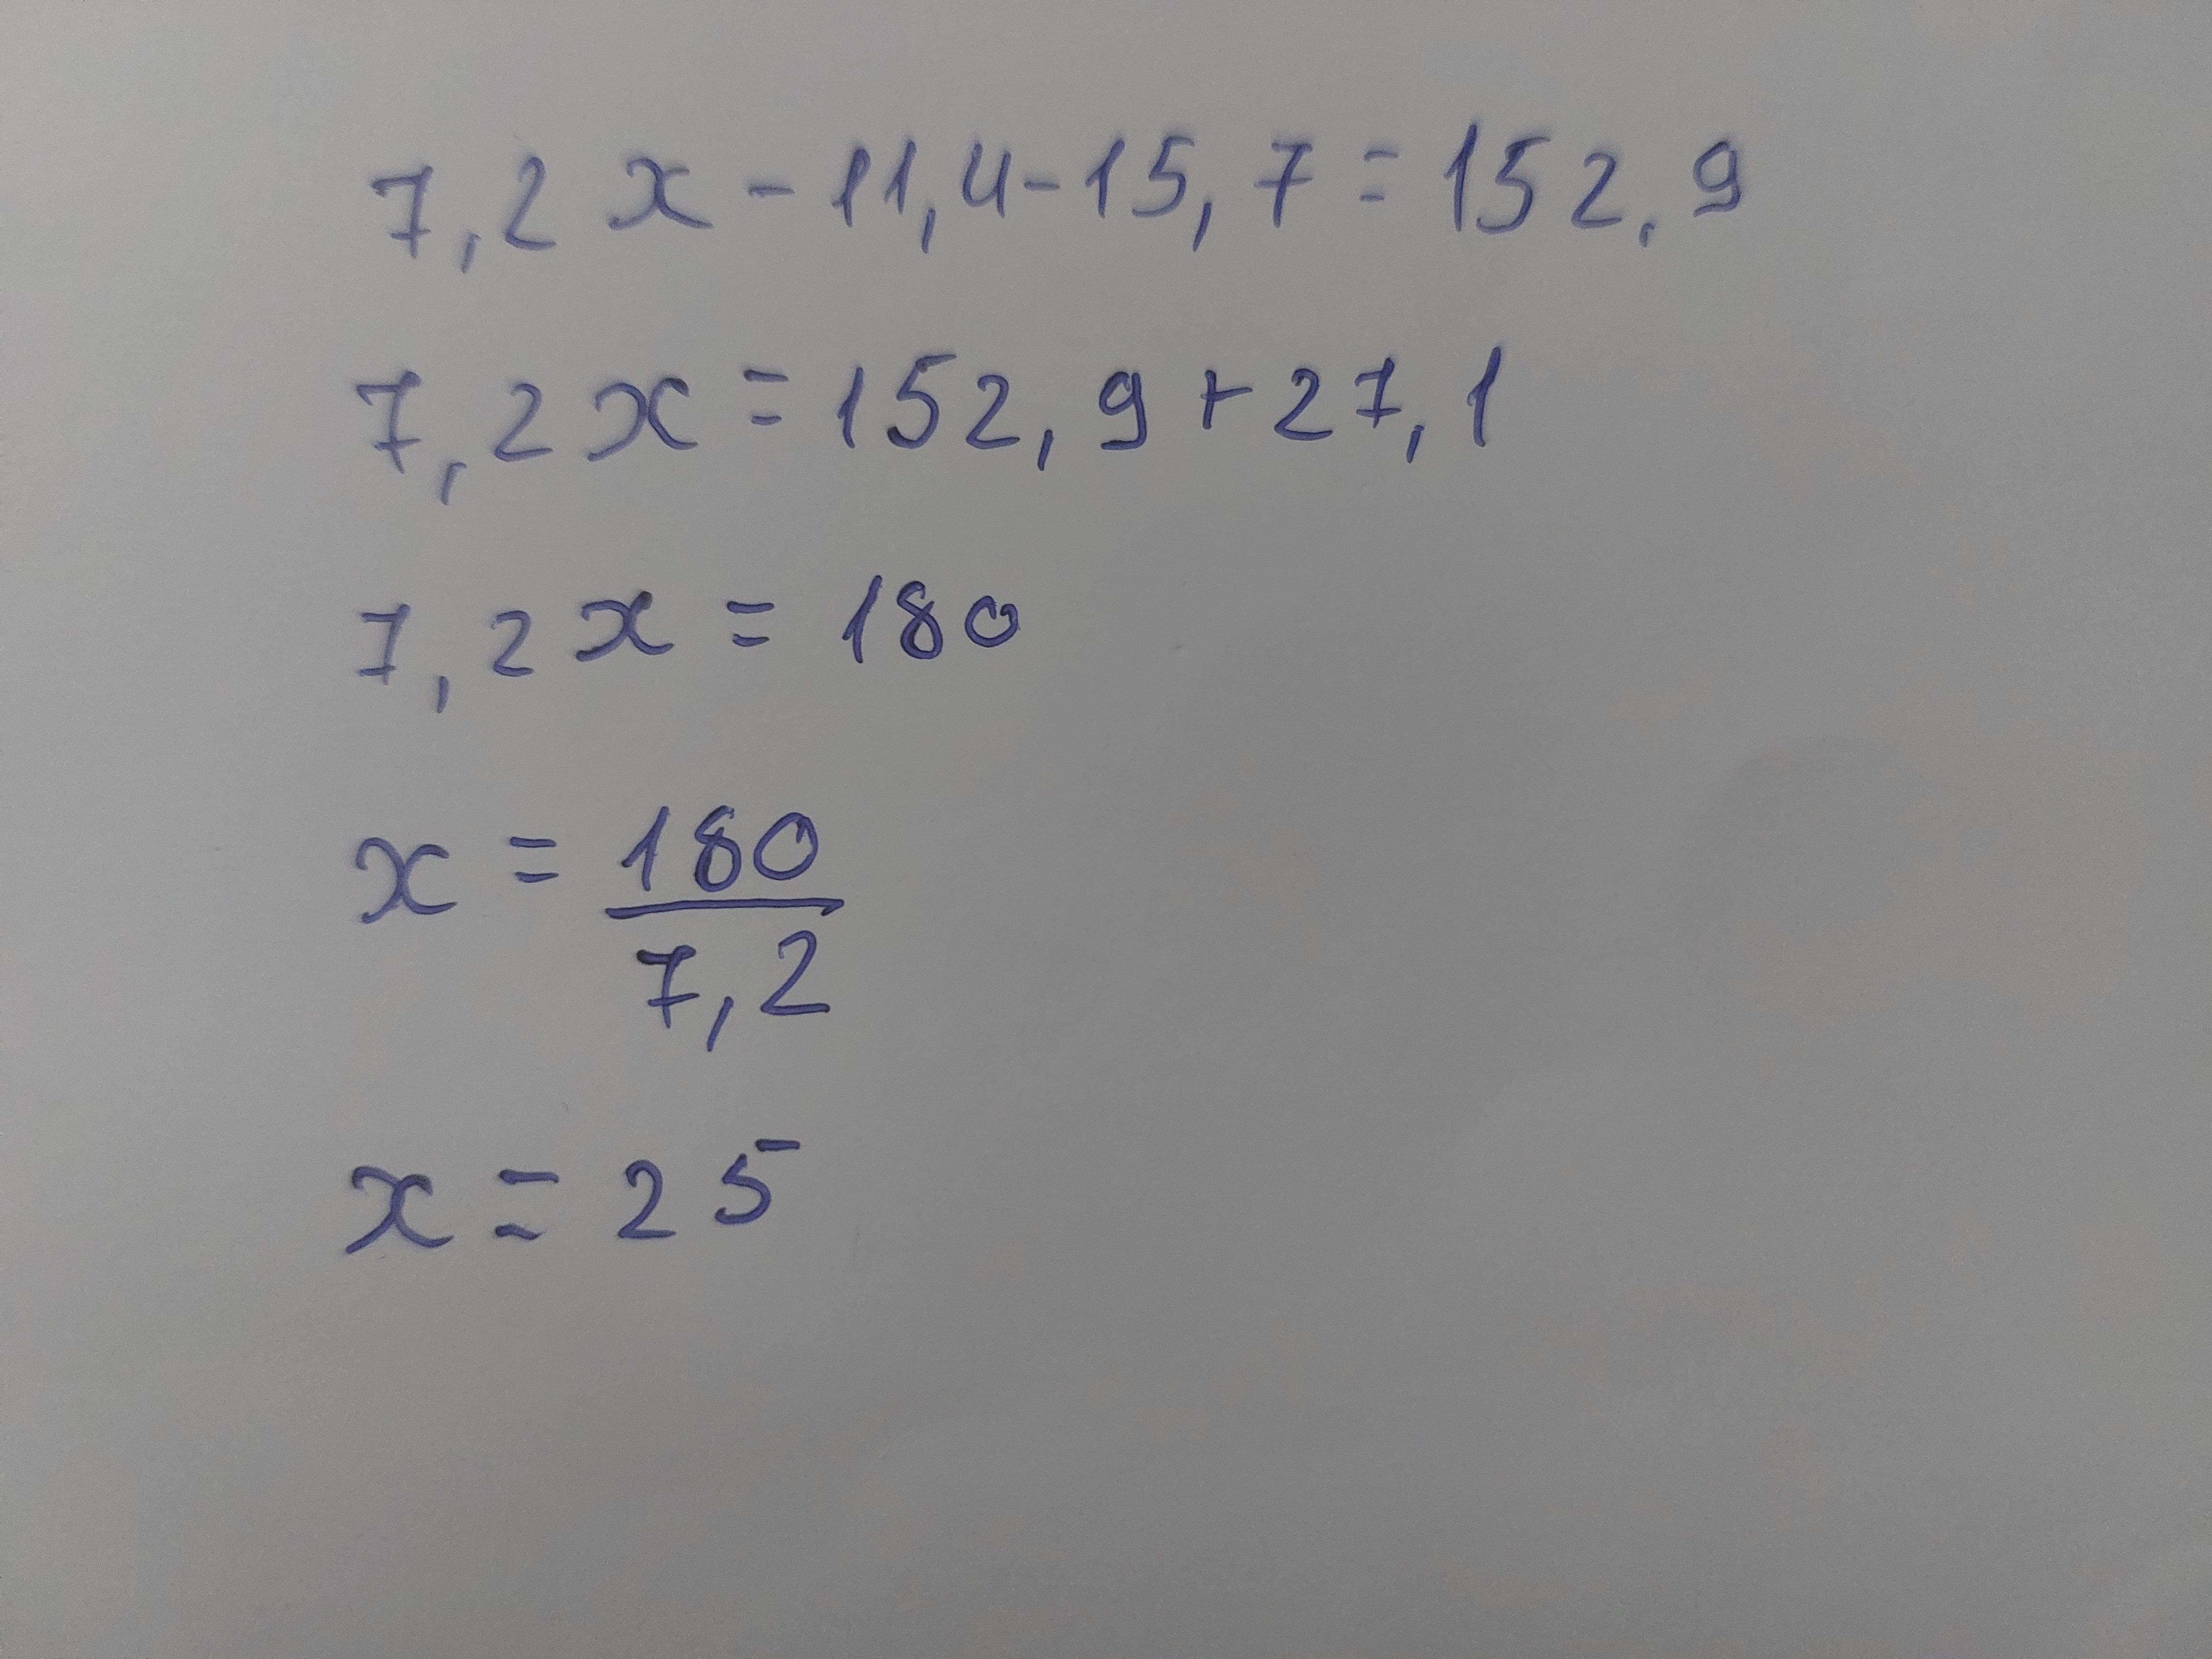 7,2x-11,4-15,7=152,9
7,2x=152,9+27,1
7,2x=180
x=180/7,2
x=25